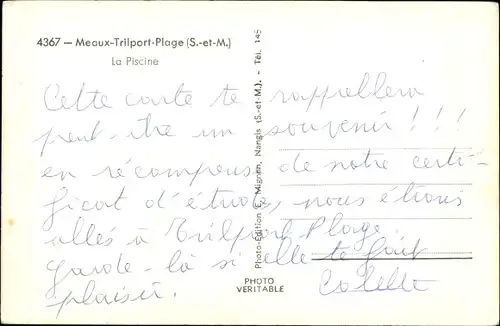 4367 — Meaux-Trilport-Plage (S.-et-M.)
La Piscine
Cette carte te rappellera
peut-être un souvenir ! ! !
en récompense de notre certi-
ficat d'étude, nous étions
allés à Trilport Plage.
Garde-la si elle te fait
plaisir. Colette
Photo-Edition E. Mignon, Nangis (S.-et-M.). — Tél. 145
PHOTO
VERITABLE